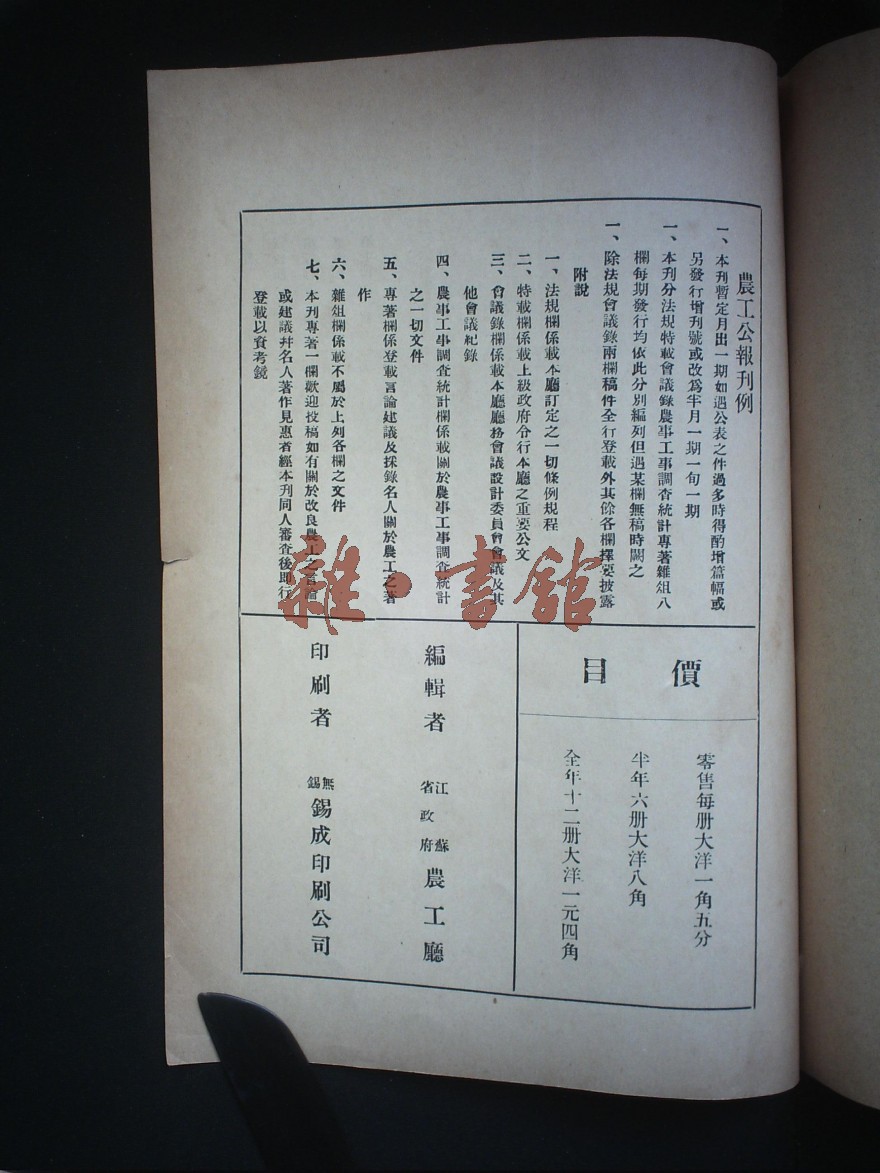 農工公報刊例
一、本刊暫定月出一期如遇公表之件過多時得酌增篇幅或
另發行增刊號或改爲半月一期一旬一期
一、本刊分法規特載會議錄農事工事調查統計專著雜俎八
欄每期發行均依此分別編列但遇某欄無稿時闕之
一、除法規會議錄兩欄稿件全行登載外其餘各欄擇要披露
附說
一、法規欄係載本廳訂定之一切條例規程
二、特載欄係載上級政府令行本廳之重要公文
三、會議錄欄係載本廳廳務會議設計委員會會議及其
他會議紀錄
四、農事工事調查統計欄係載關於農事工事調查統計
之一切文件
五、專著欄係登載言論建議及採錄名人關於農工之著
作
六、雜俎欄係載不屬於上列各欄之文件
七、本刊專著一欄歡迎投稿如有關於改良農工之言論
或建議幷名人著作見惠者經本刊同人審查後即行
登載以資考鏡
價目
零售每册大洋一角五分
半年六册大洋八角
全年十二册大洋一元四角
編輯者 江蘇省政府農工廳
印刷者 無錫錫成印刷公司
雜·書館